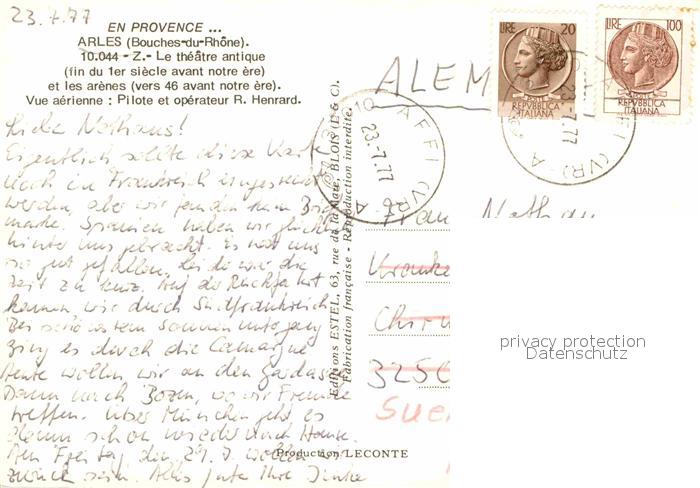 23.7.77
EN PROVENCE ...
ARLES (Bouches-du-Rhône).
10.044 - Z. - Le théâtre antique
(fin du 1er siècle avant notre ère)
et les arènes (vers 46 avant notre ère).
Vue aérienne : Pilote et opérateur R. Henrard.
Liebe Nathaus!
Eigentlich sollte diese Karte
noch in Frankreich eingesteckt
werden, aber wir fanden keine
marke. Spanien haben wir glücklich
hinter uns gebracht. Es hat uns
so gut gefallen, leider war die
Zeit zu kurz. Auf der Rückfahrt
kamen wir durch Südfrankreich
Bei schönstem Sonnenuntergang
ging es durch die Camargue
Heute wollen wir an den Gardasee
Dann nach Bozen, wo wir Freunde
treffen. Über München geht es
dann schon wieder nach Hause.
Am Freitag den 29.7. wollen wir
zurück sein. Alles Gute Ihre
Editions ESTEL, 63, rue de la Mare, BLOIS (L & C).
Fabrication française - Reproduction interdite.
Production LECONTE
LIRE 20
POSTE
REPVBBLICA
ITALIANA
LIRE 100
POSTE
REPVBBLICA
ITALIANA
AFFI (VR) - A
23.-7.77
AFFI (VR) - A
23.-7.77
ALEM
Frau Nathau
Kranke
Chir
3250
privacy protection
Datenschutz